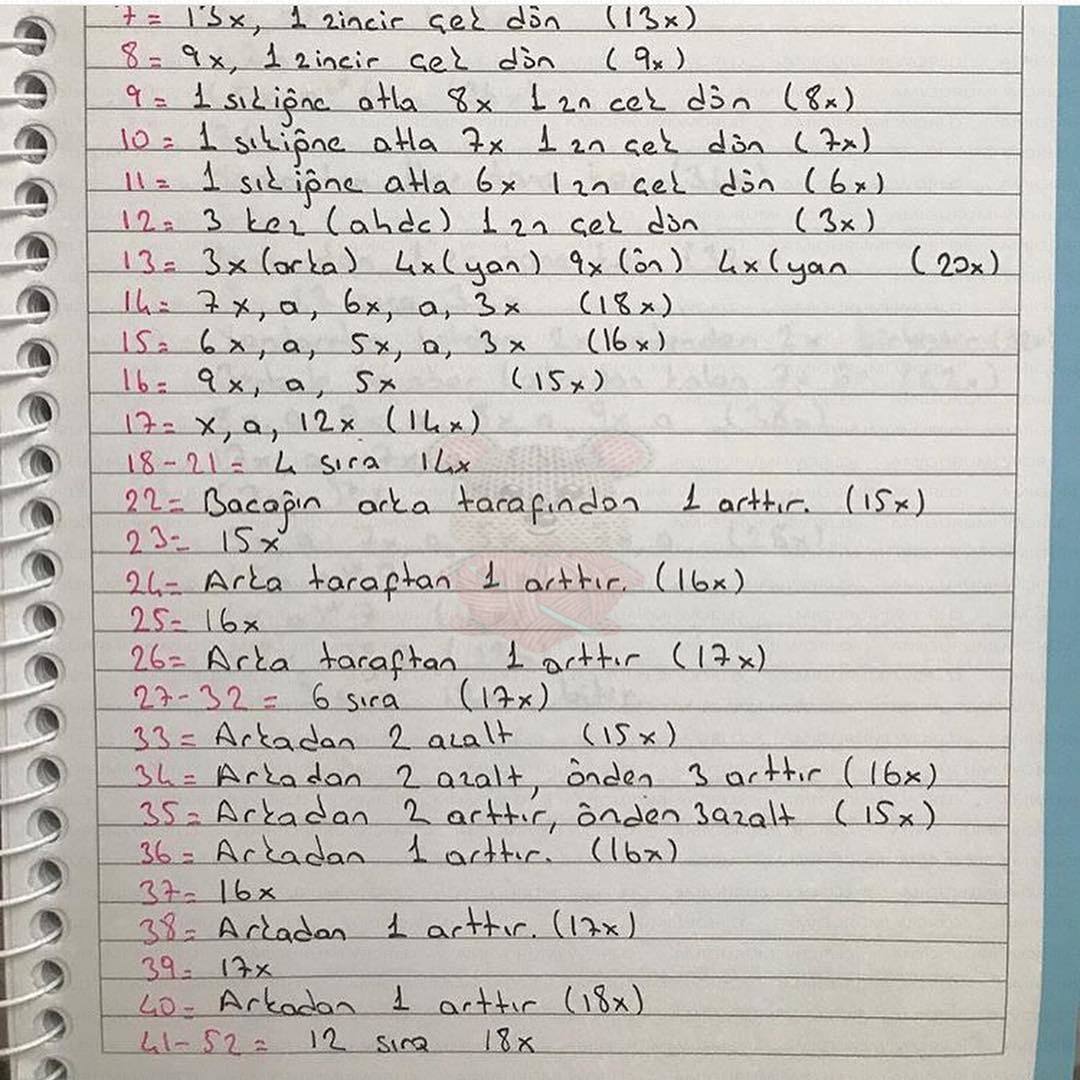 7= 13x, 1 zincir çek dön (13x)
8= 9x, 1 zincir çek dön (9x)
9= 1 sık iğne atla 8x 1 zn cek dön (8x)
10= 1 sık iğne atla 7x 1 zn çek dön (7x)
11= 1 sık iğne atla 6x 1 zn çek dön (6x)
12= 3 kez (ahdc) 1 zn çek dön (3x)
13= 3x (arka) 4x (yan) 9x (ön) 4x (yan (20x)
14= 7x, a, 6x, a, 3x (18x)
15= 6x, a, 5x, a, 3x (16x)
16= 9x, a, 5x (15x)
17= x, a, 12x (14x)
18-21= 4 sıra 14x
22= Bacağın arka tarafından 1 arttır. (15x)
23= 15x
24= Arka taraftan 1 arttır. (16x)
25= 16x
26= Arka taraftan 1 arttır (17x)
27-32= 6 sıra (17x)
33= Arkadan 2 azalt (15x)
34= Arkadan 2 azalt, önden 3 arttır (16x)
35= Arkadan 2 arttır, önden 3azalt (15x)
36= Arkadan 1 arttır. (16x)
37= 16x
38= Arkadan 1 arttır. (17x)
39= 17x
40= Arkadan 1 arttır (18x)
41-52= 12 sıra 18x